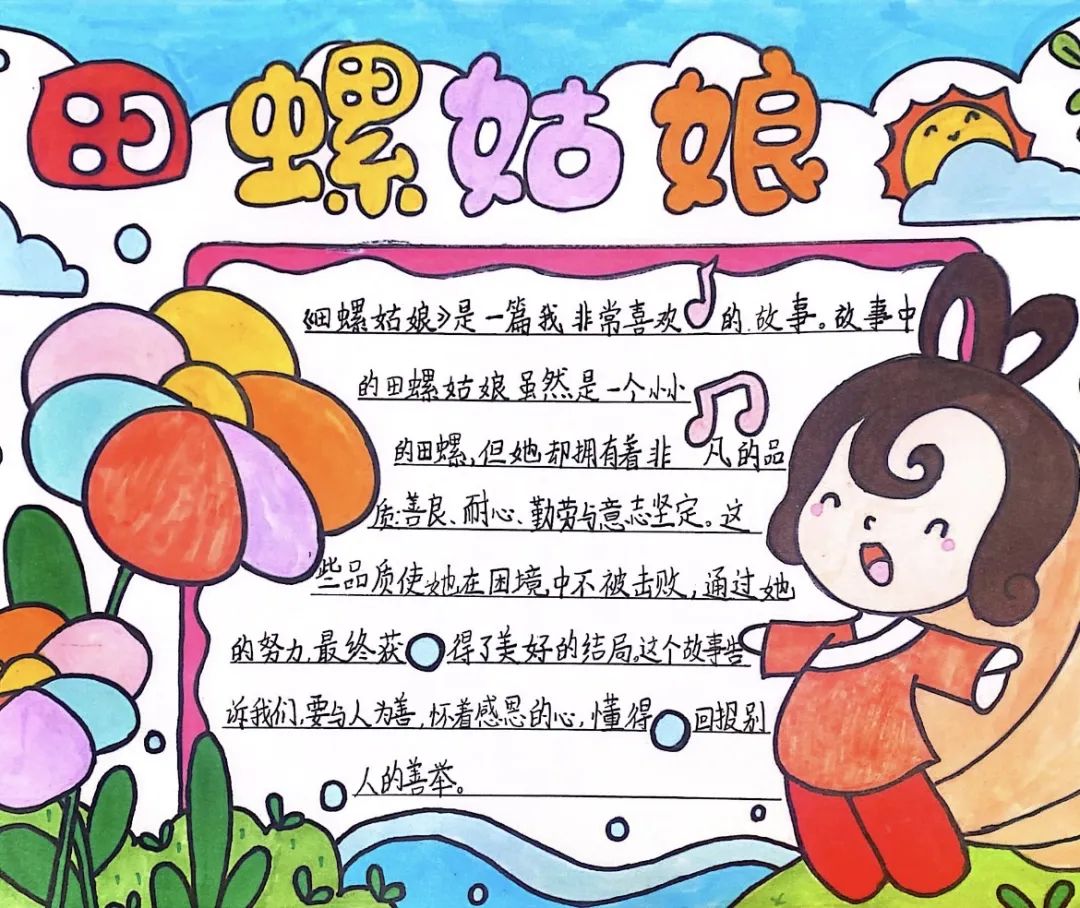 田螺姑娘
《田螺姑娘》是一篇我非常喜欢的故事。故事中
的田螺姑娘虽然是一个小小
的田螺,但她却拥有着非凡的品
质:善良、耐心、勤劳与意志坚定。这
些品质使她在困境中不被击败,通过她
的努力,最终获得了美好的结局。这个故事告
诉我们,要与人为善,怀着感恩的心,懂得回报别
人的善举。